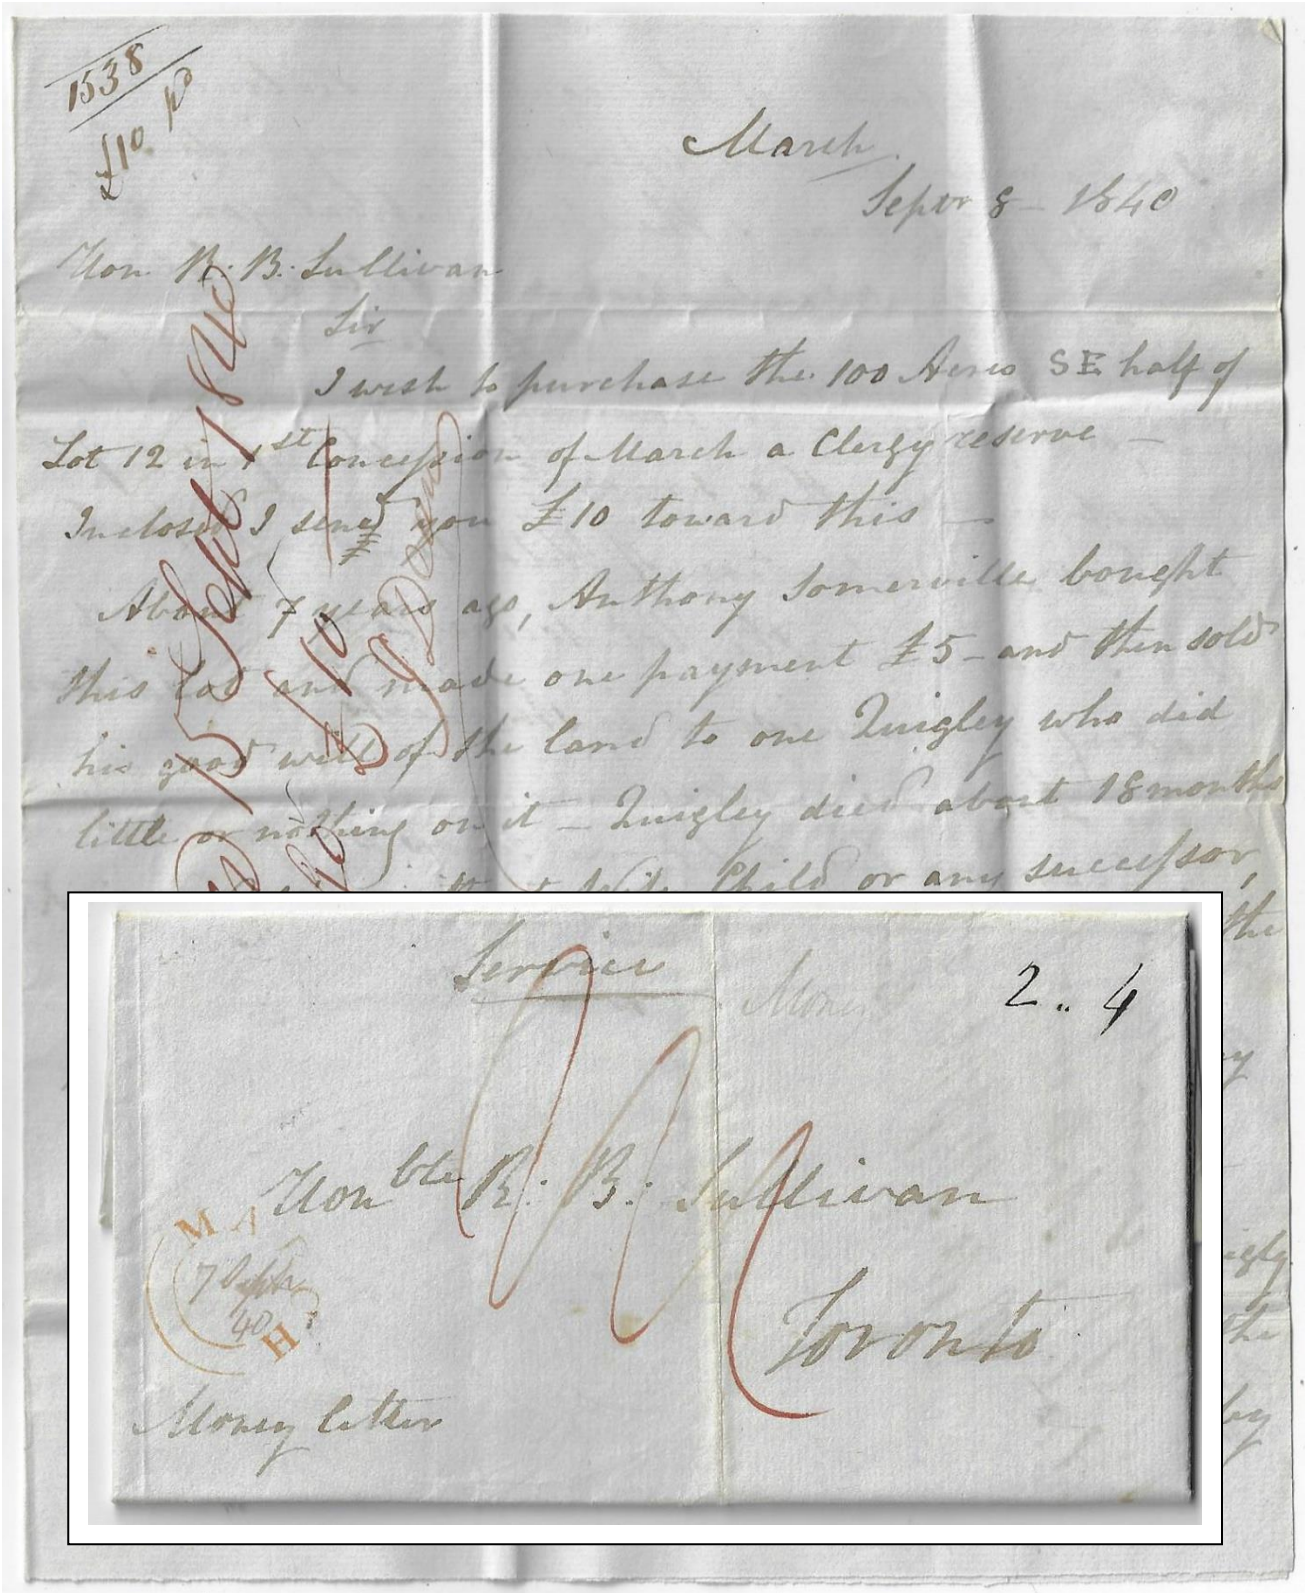 1538
£10 pd
March
Septr 8 - 1840
Hon. R. B. Sullivan
Sir
I wish to purchase the 100 Acres SE half of
Lot 12 in 1st Concession of March a Clergy reserve -
Inclosed I send you £10 toward this -
About 7 years ago, Anthony Somerville bought
this lot and made one payment £5 - and then sold
his good will of the land to one Quigley who did
little or nothing on it - Quigley died about 18 months
Wife Child or any successor,
the
15 Sept 1840
£10
Service
Money
2 .. 4
Honble R. B. Sullivan
Toronto
MA H
7 Septr
40
Money letter
the
by